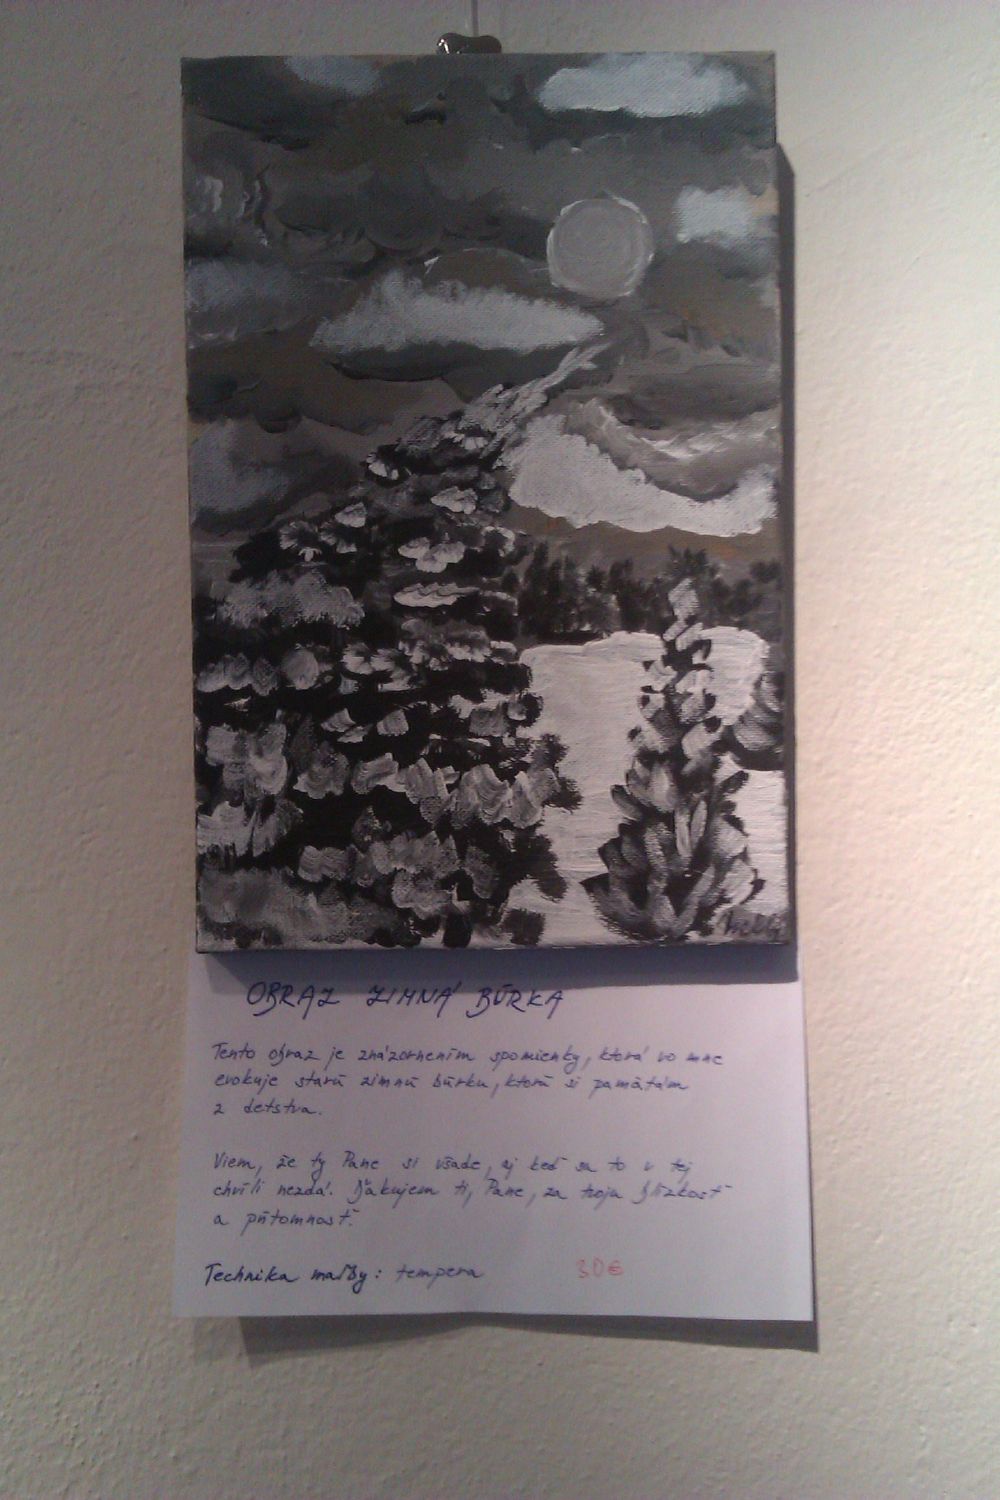 OBRAZ ZIMNÁ BÚRKA
Tento obraz je znázornením spomienky, ktorá vo mne
evokuje starú zimnú búrku, ktorú si pamätám
z detstva.
Viem, že ty Pane si všade, aj keď sa to v tej
chvíli nezdá. Ďakujem ti, Pane, za tvoju blízkosť
a prítomnosť.
Technika maľby: tempera 30€